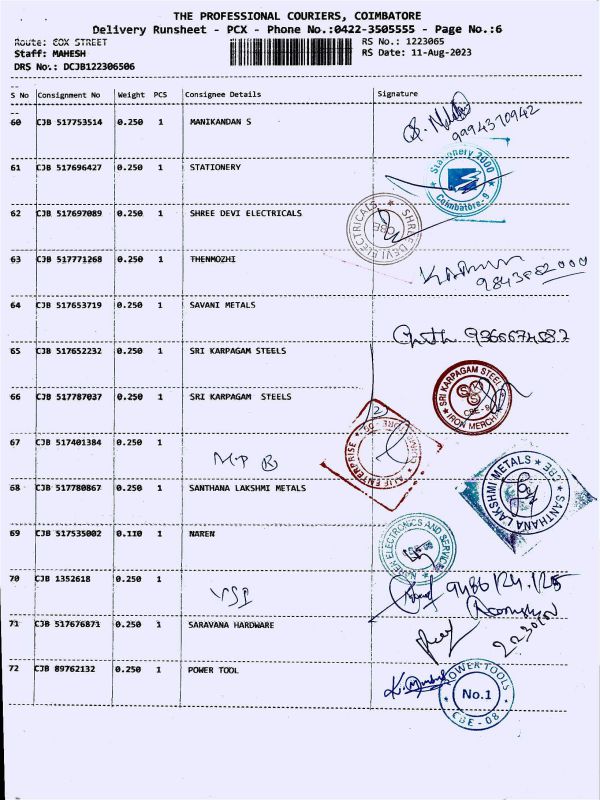 THE PROFESSIONAL COURIERS, COIMBATORE
Delivery Runsheet - PCX - Phone No.:0422-3505555 - Page No.:6
Route: COX STREET
Staff: MAHESH
DRS No.: DCJB122306506
RS No.: 1223065
RS Date: 11-Aug-2023
S No Consignment No Weight PCS Consignee Details Signature
60 CJB 517753514 0.250 1 MANIKANDAN S
9994370942
61 CJB 517696427 0.250 1 STATIONERY
Stationery 2000 Coimbatore-9
62 CJB 517697089 0.250 1 SHREE DEVI ELECTRICALS
SHREE DEVI ELECTRICALS CBE
63 CJB 517771268 0.250 1 THENMOZHI
64 CJB 517653719 0.250 1 SAVANI METALS
65 CJB 517652232 0.250 1 SRI KARPAGAM STEELS
SRI KARPAGAM STEEL IRON MERCHA CBE-9
66 CJB 517787037 0.250 1 SRI KARPAGAM STEELS
67 CJB 517401384 0.250 1
ENTERPRISE
68 CJB 517780867 0.250 1 SANTHANA LAKSHMI METALS
SANTHANA LAKSHMI METALS CBE
69 CJB 517535002 0.110 1 NAREN
NAREN ELECTRONICS AND SERVICES
70 CJB 1352618 0.250 1
VSI
71 CJB 517676871 0.250 1 SARAVANA HARDWARE
72 CJB 89762132 0.250 1 POWER TOOL
POWER TOOLS No.1 CBE-08